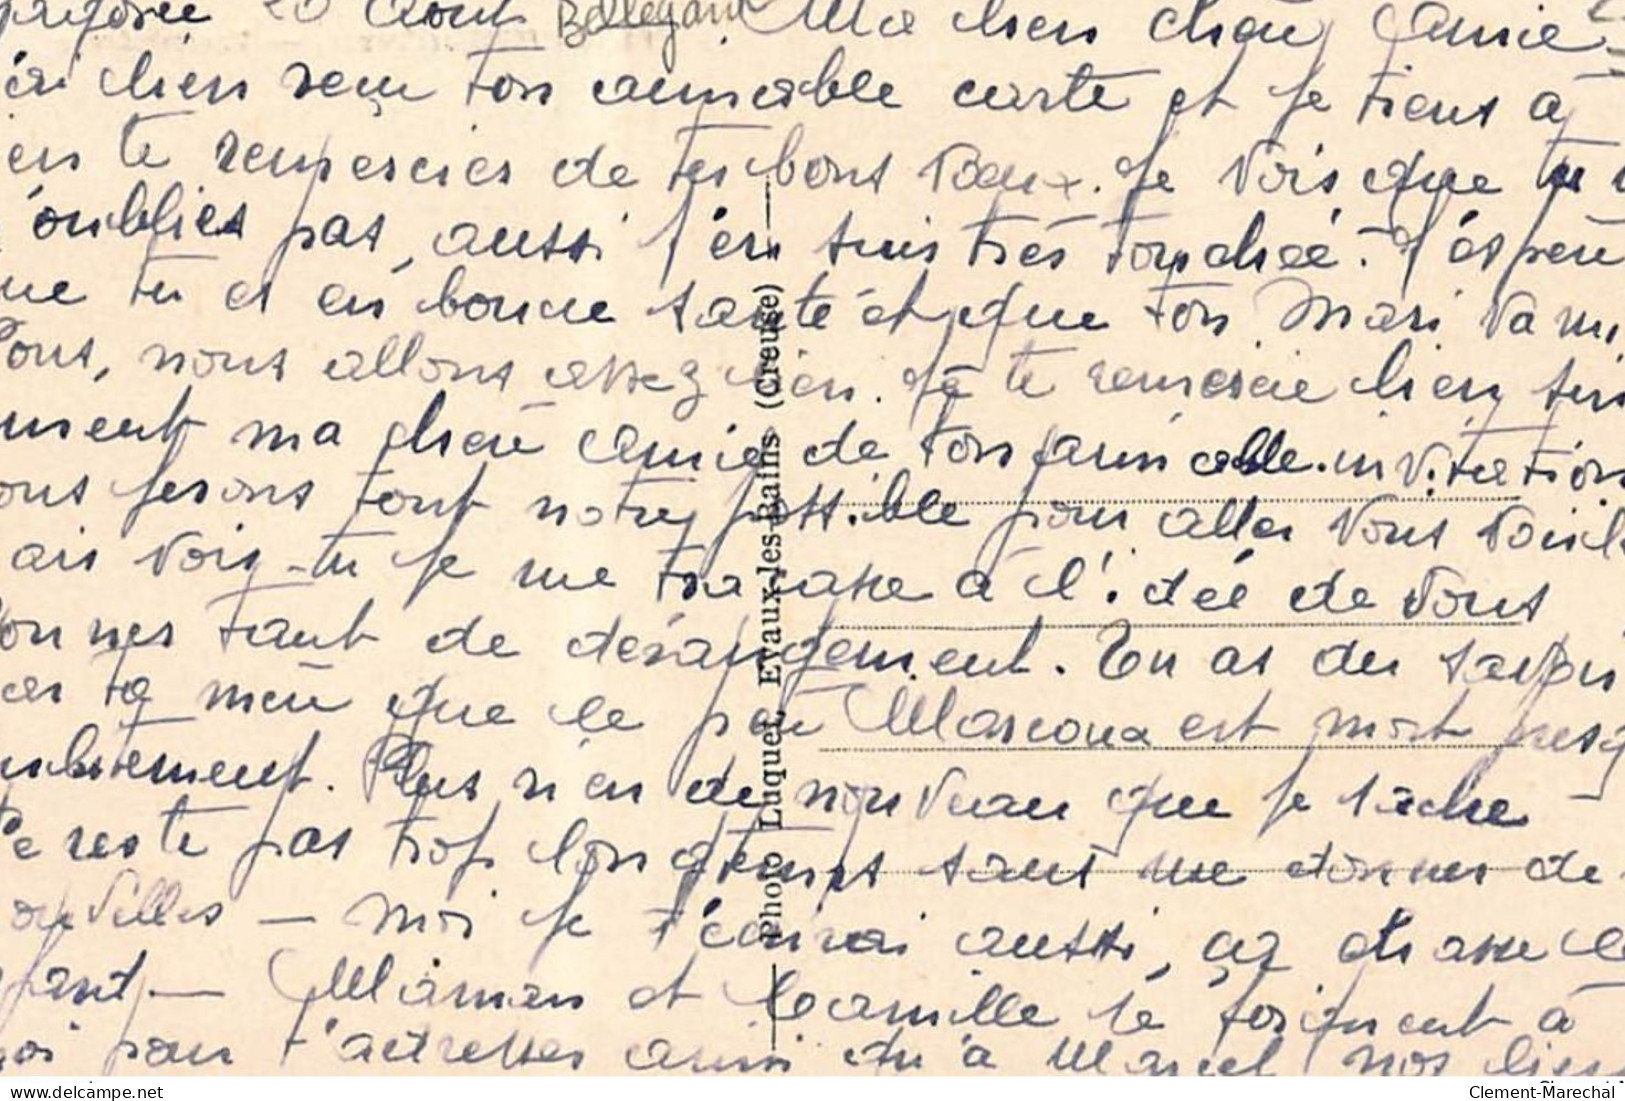 20 Aout Bellegarde Ma bien chère Amie
ai bien reçu ton aimable carte et je tiens à
en te remercier de tes bons vœux. Je vois que tu
oublies pas, aussi j'en suis très touchée. J'espère
que tu es en bonne santé et que ton Mari va mi
nous allons assez bien. Je te remercie bien sin
ment ma chère Amie de ton aimable invitation
ferons tout notre possible pour aller vous voir
ais vois-tu je me tracasse à l'idée de vous
donner tant de dérangement. Tu as du savoir
par ta mère que le père Marcoux est mort presq
subitement. Plus rien de nouveau que je sache -
Ne reste pas trop longtemps sans me donner de
nouvelles - Moi je t'écrirai aussi, ça chasse le
- Maman et Camille se joignent à
moi pour t'adresser ainsi qu'à Marcel nos
Photo Luquet, Evaux-les-Bains (Creuse)
Clement-Marechal